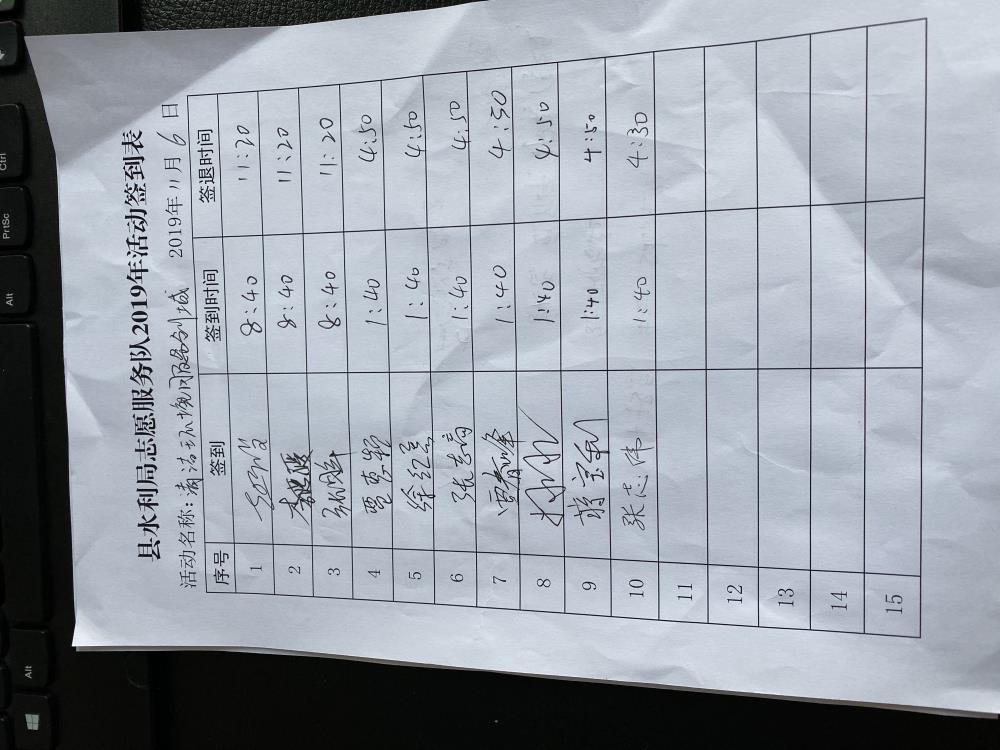 县水利局志愿服务队2019年活动签到表
活动名称：清洁环境 服务创城 2019年11月6日
序号 签到 签到时间 签退时间
1 8:40 11:20
2 李波 8:40 11:20
3 8:40 11:20
4 1:40 4:50
5 徐红星 1:40 4:50
6 张志高 1:40 4:50
7 贾春峰 1:40 4:50
8 1:40 4:50
9 1:40 4:50
10 张志伟 1:40 4:30
11
12
13
14
15
Ctrl
PrtSc
Alt
Alt